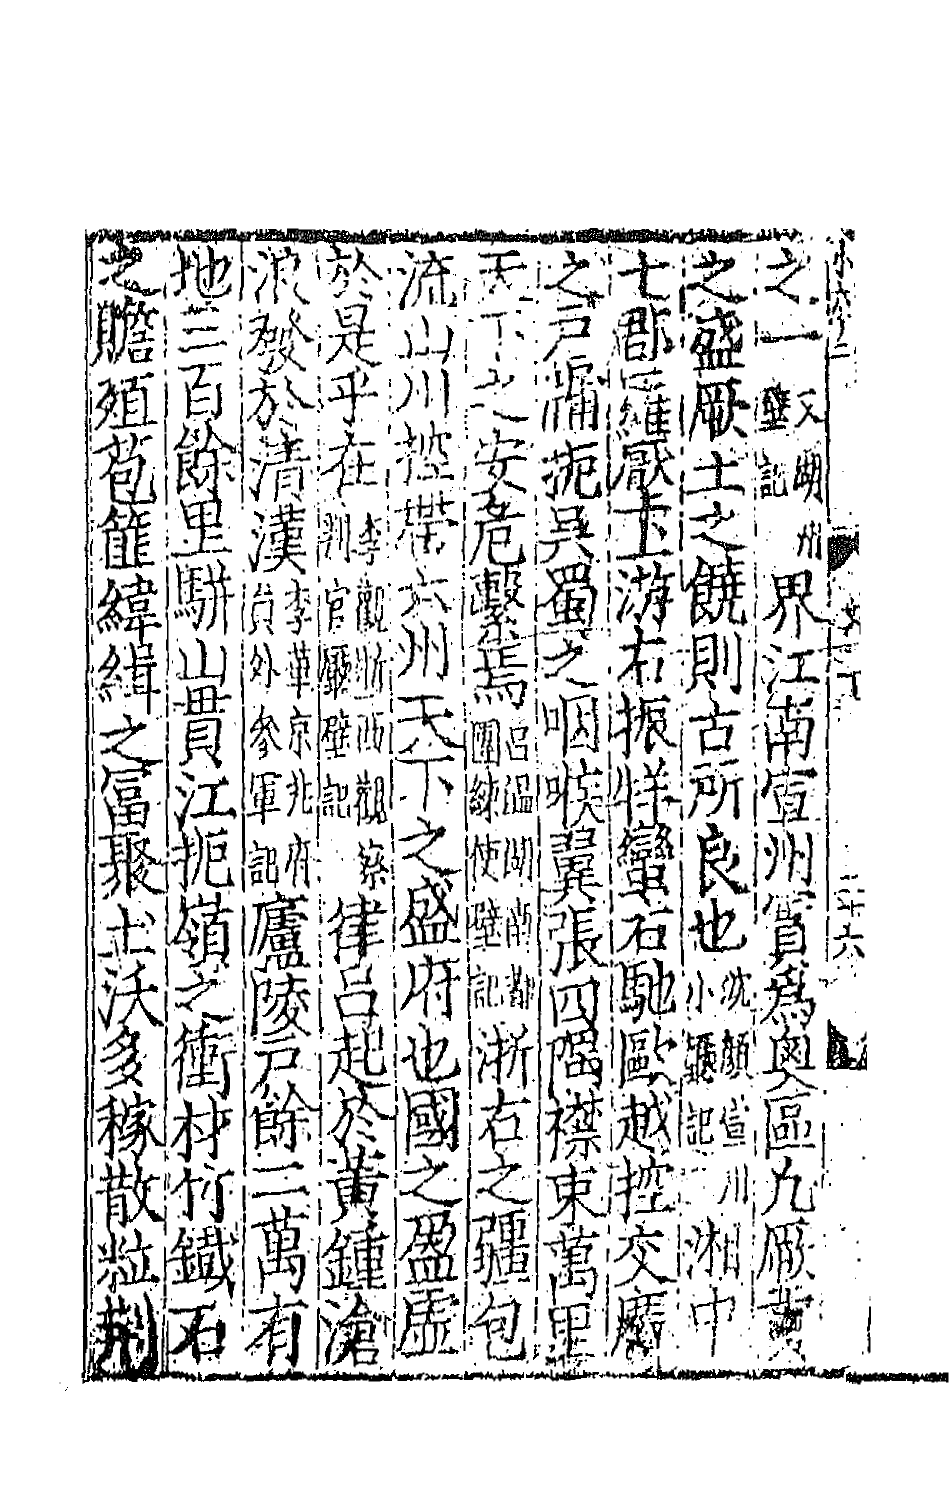 之一又湖州壁記界江南宣州實爲奧區九厥賁
之盛厥土之饒則古所良也沈顔宣州小廳記湘中
七郡羅厭上游右振牂蠻右馳歐越控交廣
之戸牖扼吳蜀之咽喉翼張四隅襟束萬里
天下之安危繫焉呂溫湖南都團練使壁記浙右之疆包
流山川控帶六州天下之盛府也國之盈虛
於是乎在李觀浙西觀察判官廳壁記律呂起於黃鍾滄
浪發於清漢李華京兆府員外參軍記廬陵戸餘二萬有
地三百餘里駢山貫江扼嶺之衝材竹鐵石
之贍殖苞篚緯緝之富聚土沃多稼散粒荆